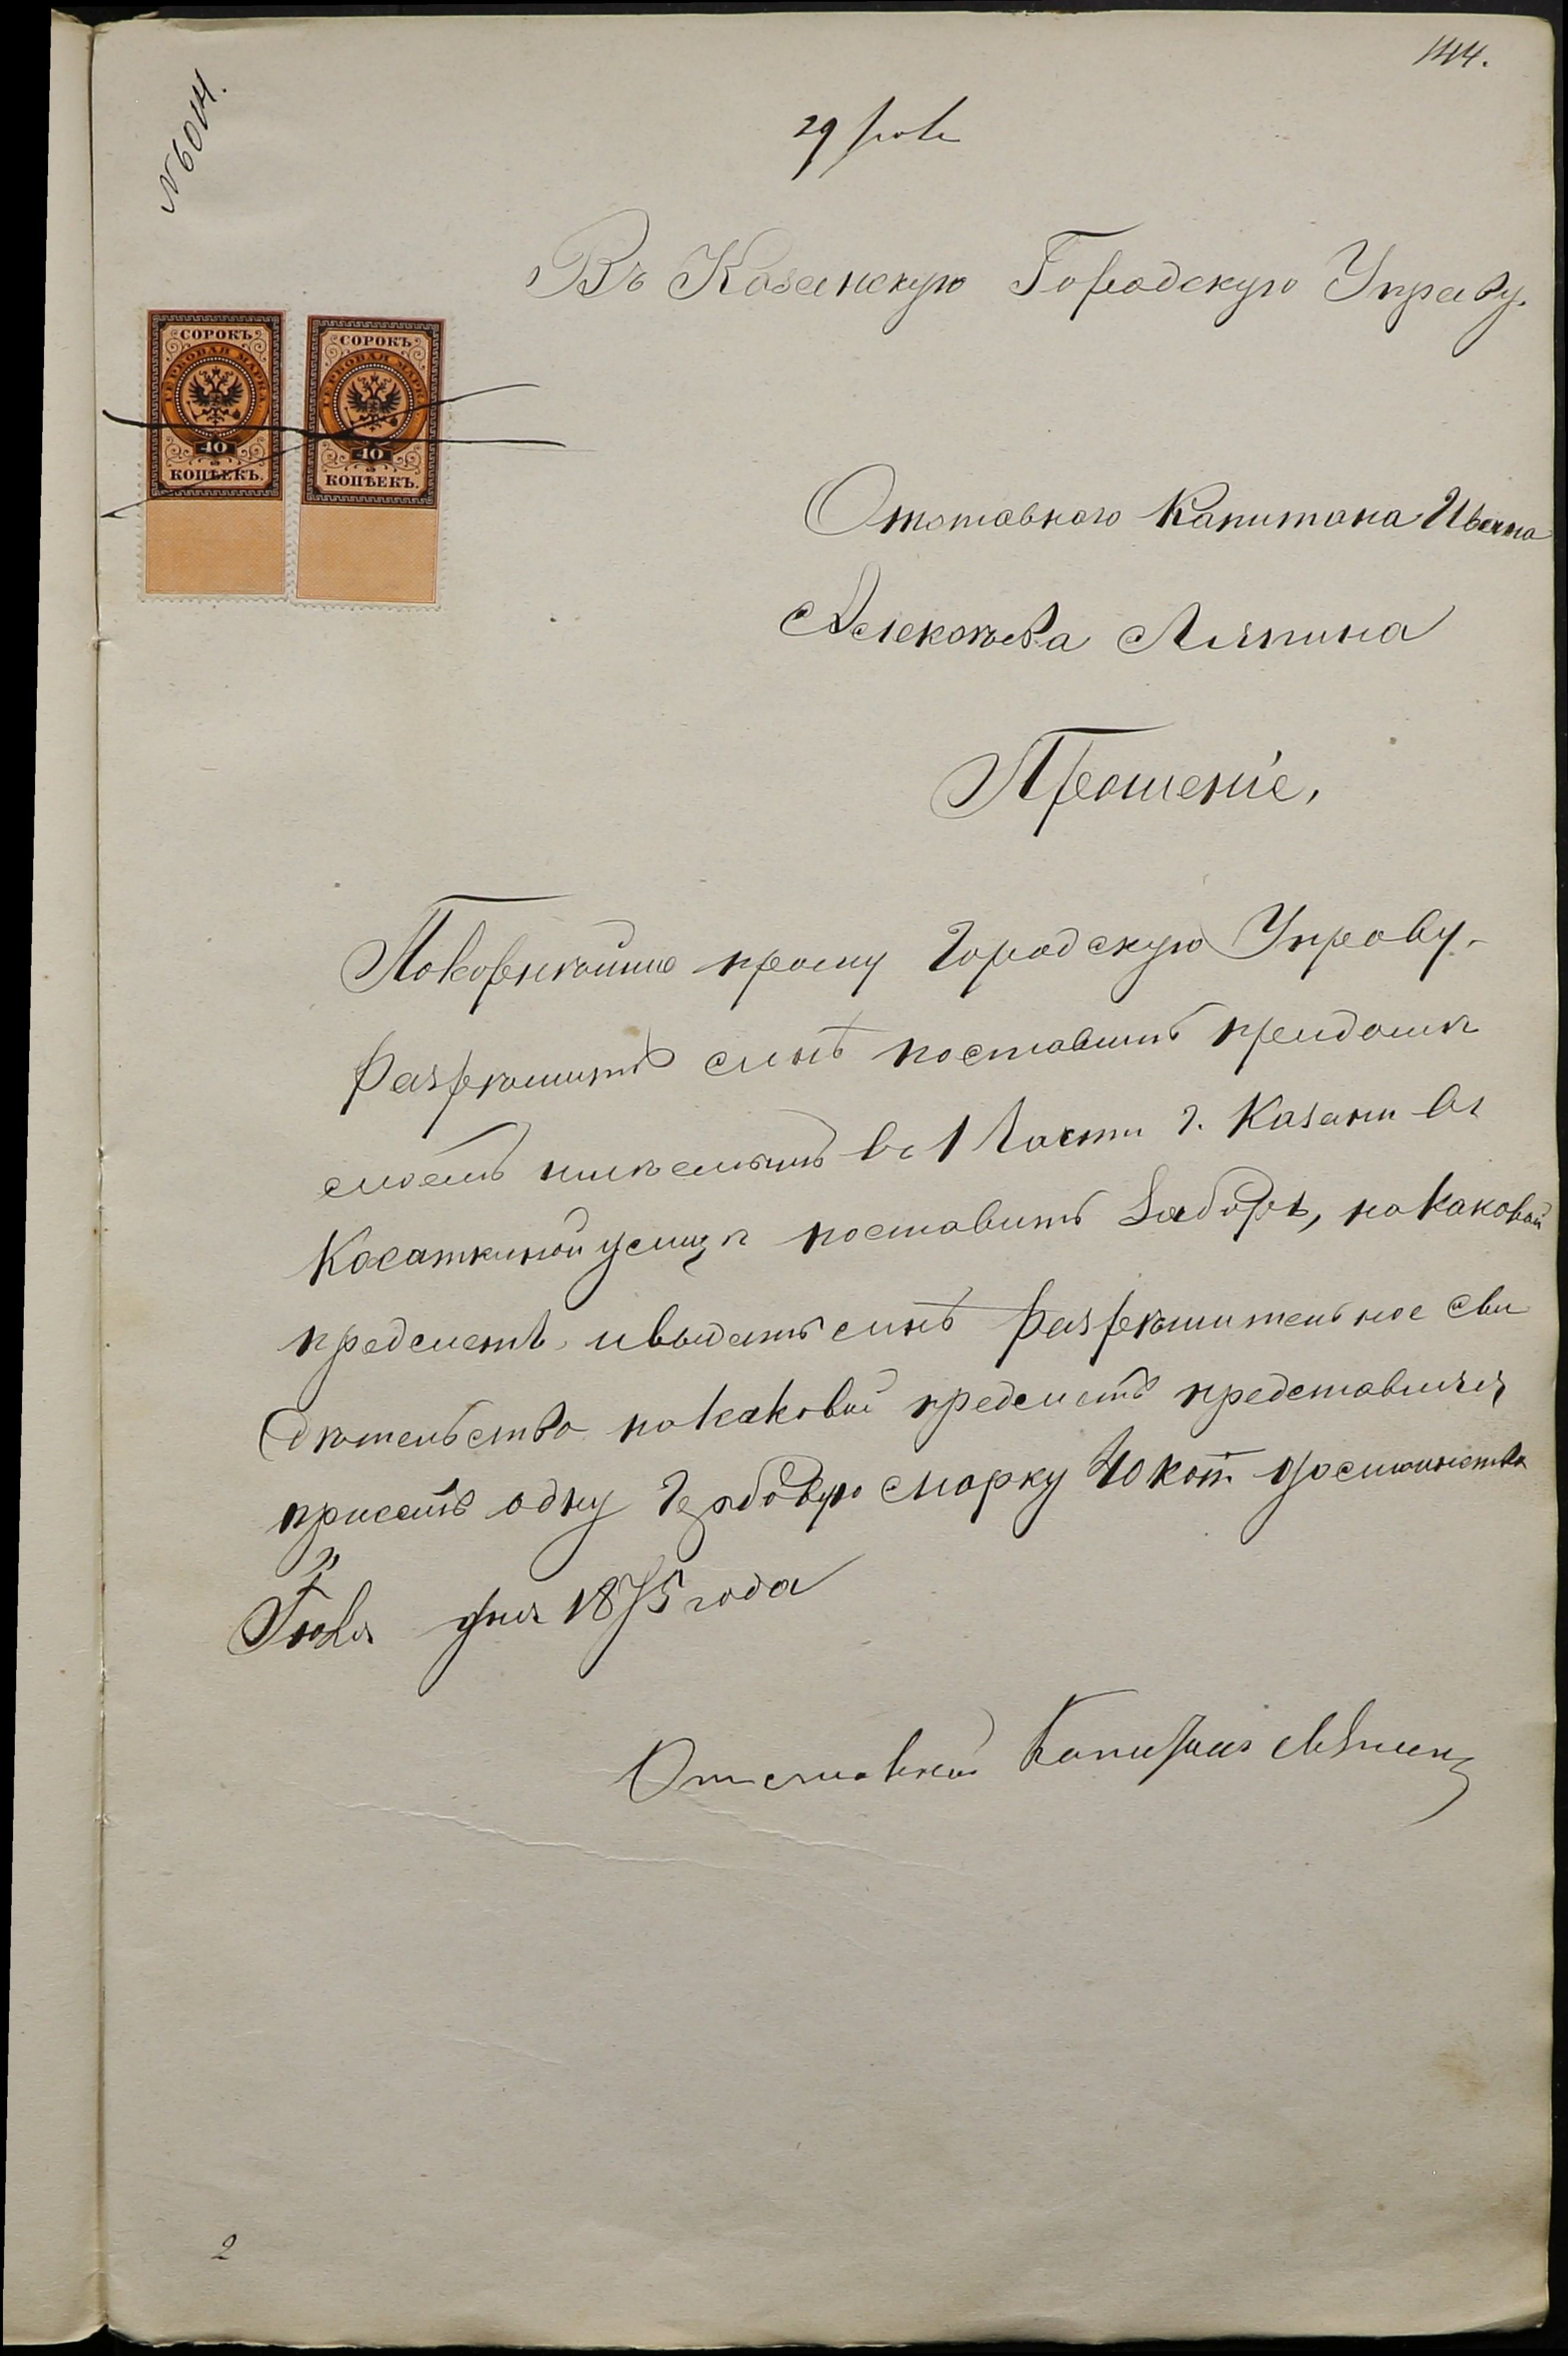 144.
№ 6014.
29 Іюля
Въ Казанскую Городскую Управу.
СОРОКЪ СОРОКЪ
ГЕРБОВАЯ МАРКА ГЕРБОВАЯ МАРКА
40 40
КОПѢЕКЪ. КОПѢЕКЪ.
Отставнаго Капитана Ивана
Алексѣева Ляпина
Прошеніе,
Покорнѣйше прошу Городскую Управу
Разрѣшить мнѣ поставить придомѣ
моемъ имѣемымъ въ 1 Части г. Казани въ
Касаткиной улицѣ поставить Заборъ, накаковой
предметъ ивыдать мнѣ разрѣшительное сви
дѣтельство накаковой предметъ представляя
присемъ одну Гербовую марку 40 коп. достоинства
Іюля дня 1875 года
Отставной Капитанъ Ляпинъ
2